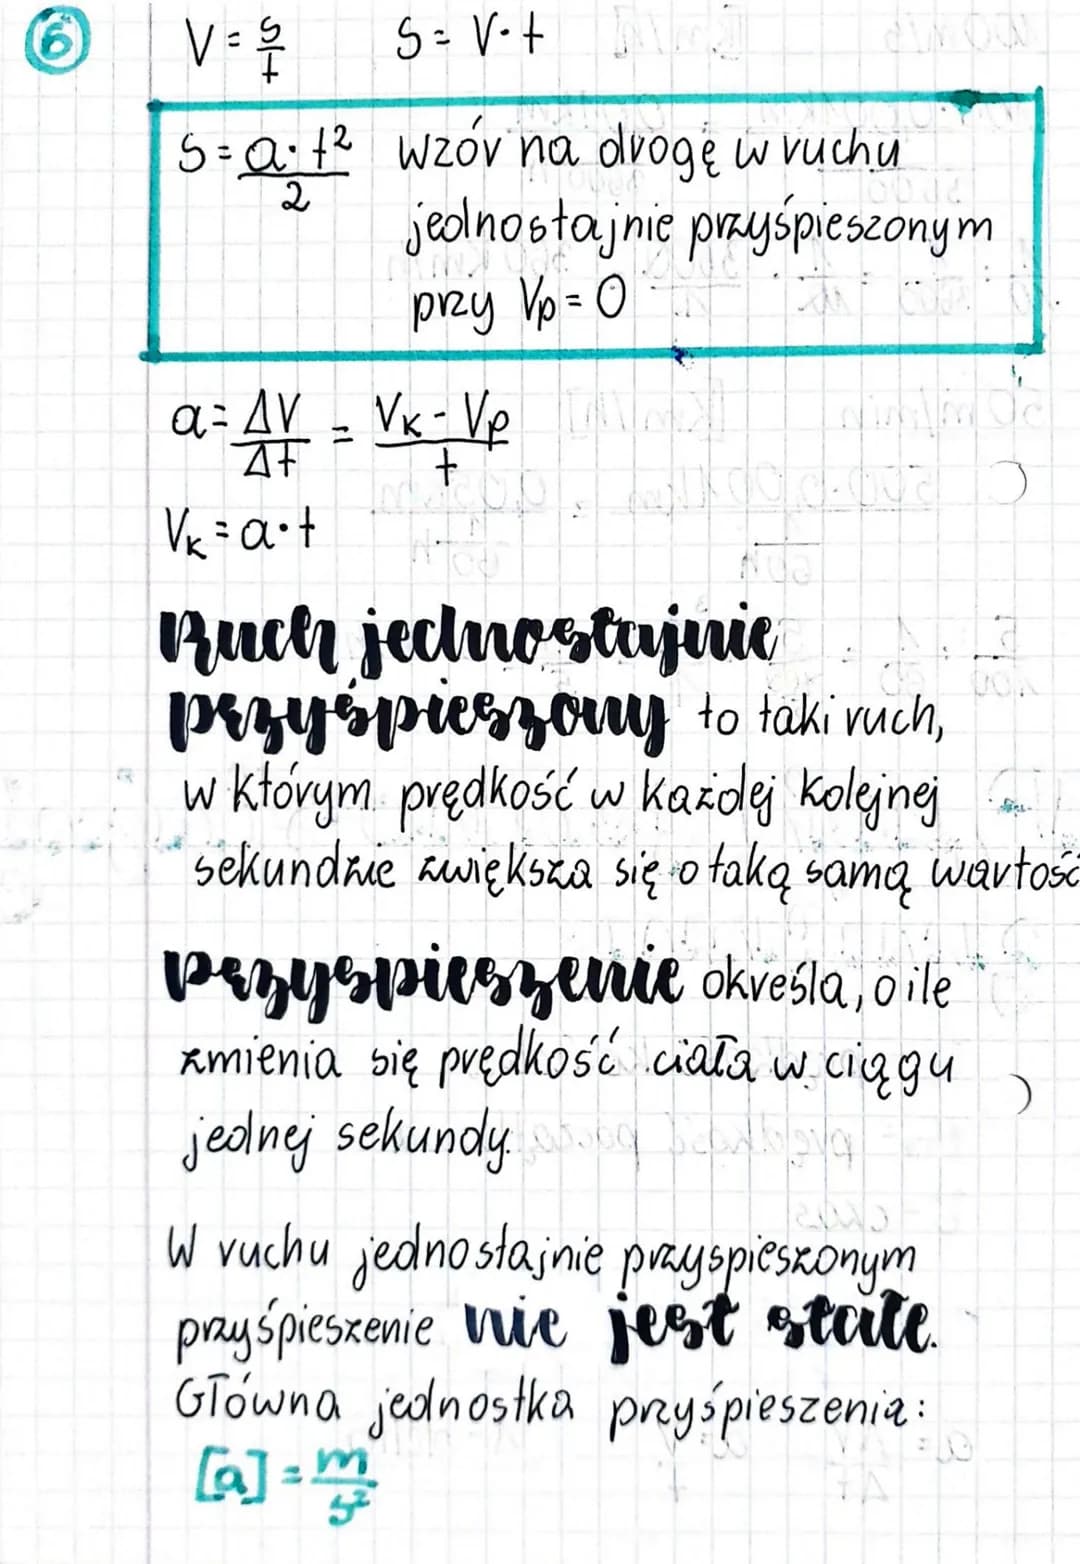 6
V = s/t    S = V·t
S = a·t²/2 wzór na drogę w ruchu
jednostajnie przyśpieszonym
przy Vp = 0
a = ΔV/Δt = Vk - Vp/t
Vk = a·t
Ruch jednostajnie
przyśpieszony to taki ruch,
w którym prędkość w każdej kolejnej
sekundzie zwiększa się o taką samą wartość
Przyspieszenie określa, o ile
zmienia się prędkość ciała w ciągu
jednej sekundy.
W ruchu jednostajnie przyspieszonym
przyśpieszenie nie jest stałe.
Główna jednostka przyśpieszenia:
[a] = m/s²